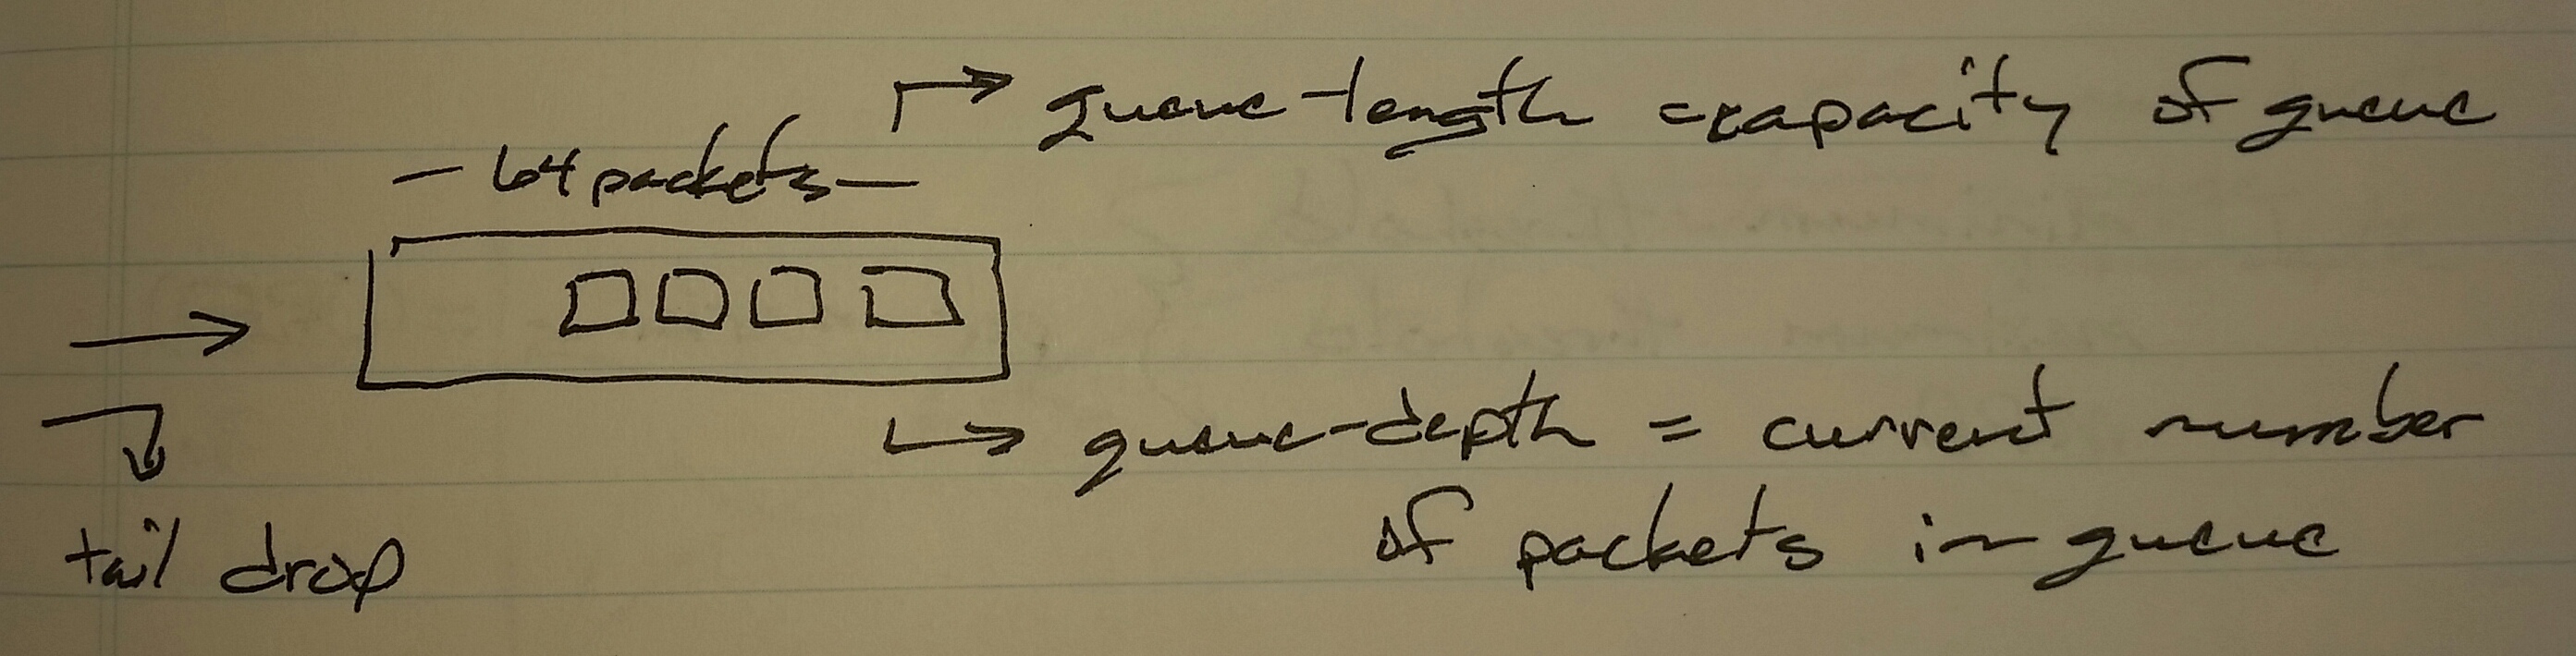 queue-length = capacity of queue
- 64 packets -
queue-depth = current number
of packets in queue
tail drop